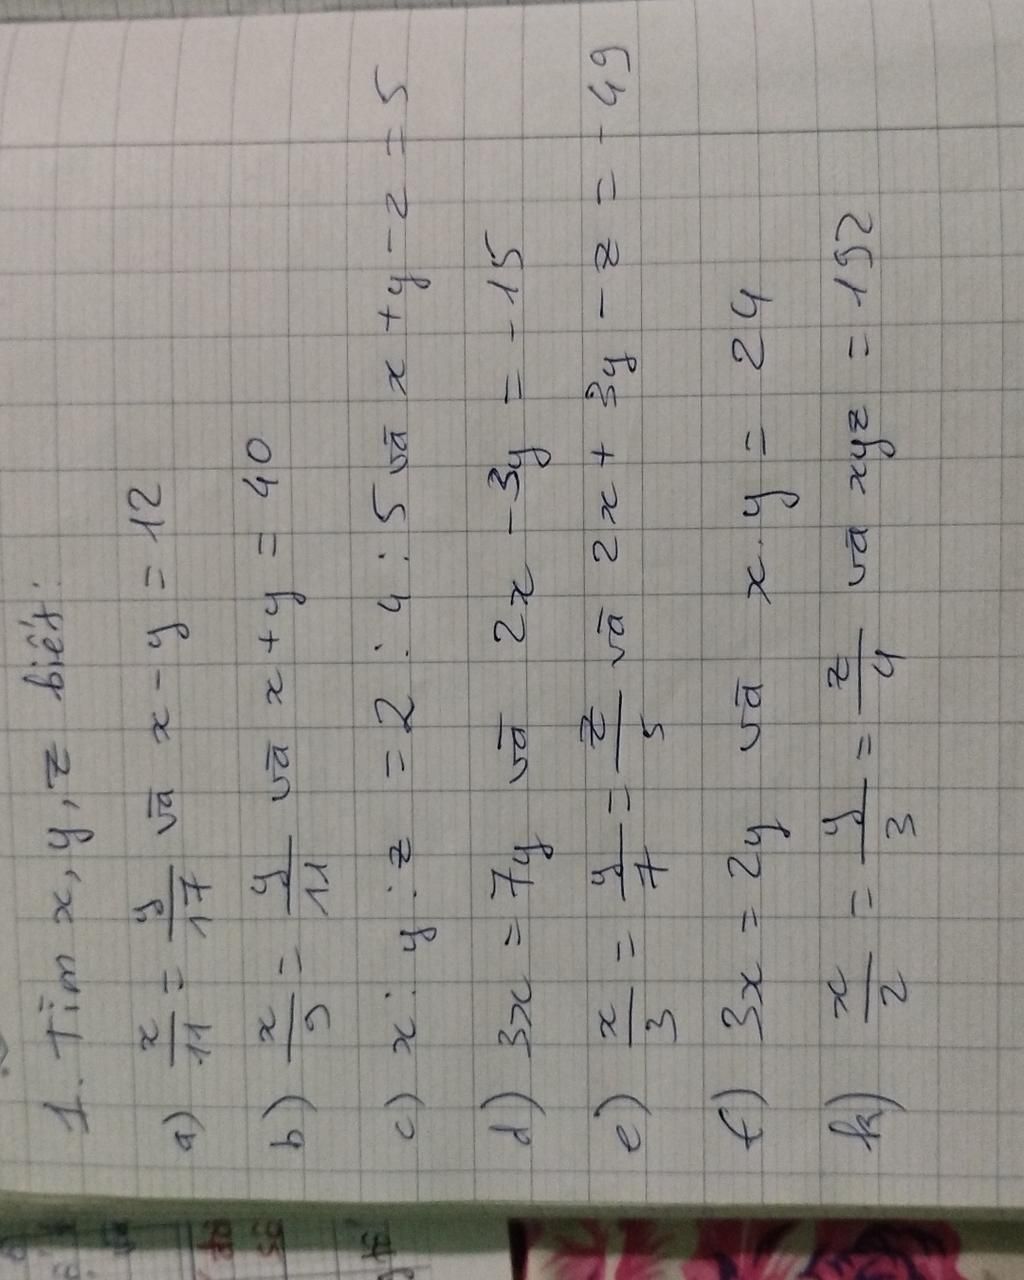 1. Tìm x, y, z biết:
a) x/11 = y/17 và x - y = 12
b) x/9 = y/11 và x + y = 40
c) x : y : z = 2 : 4 : 5 và x + y - z = 5
d) 3x = 7y và 2x - 3y = -15
e) x/3 = y/7 = z/5 và 2x + 3y - z = -49
f) 3x = 2y và x . y = 24
k) x/2 = y/3 = z/4 và xyz = 192